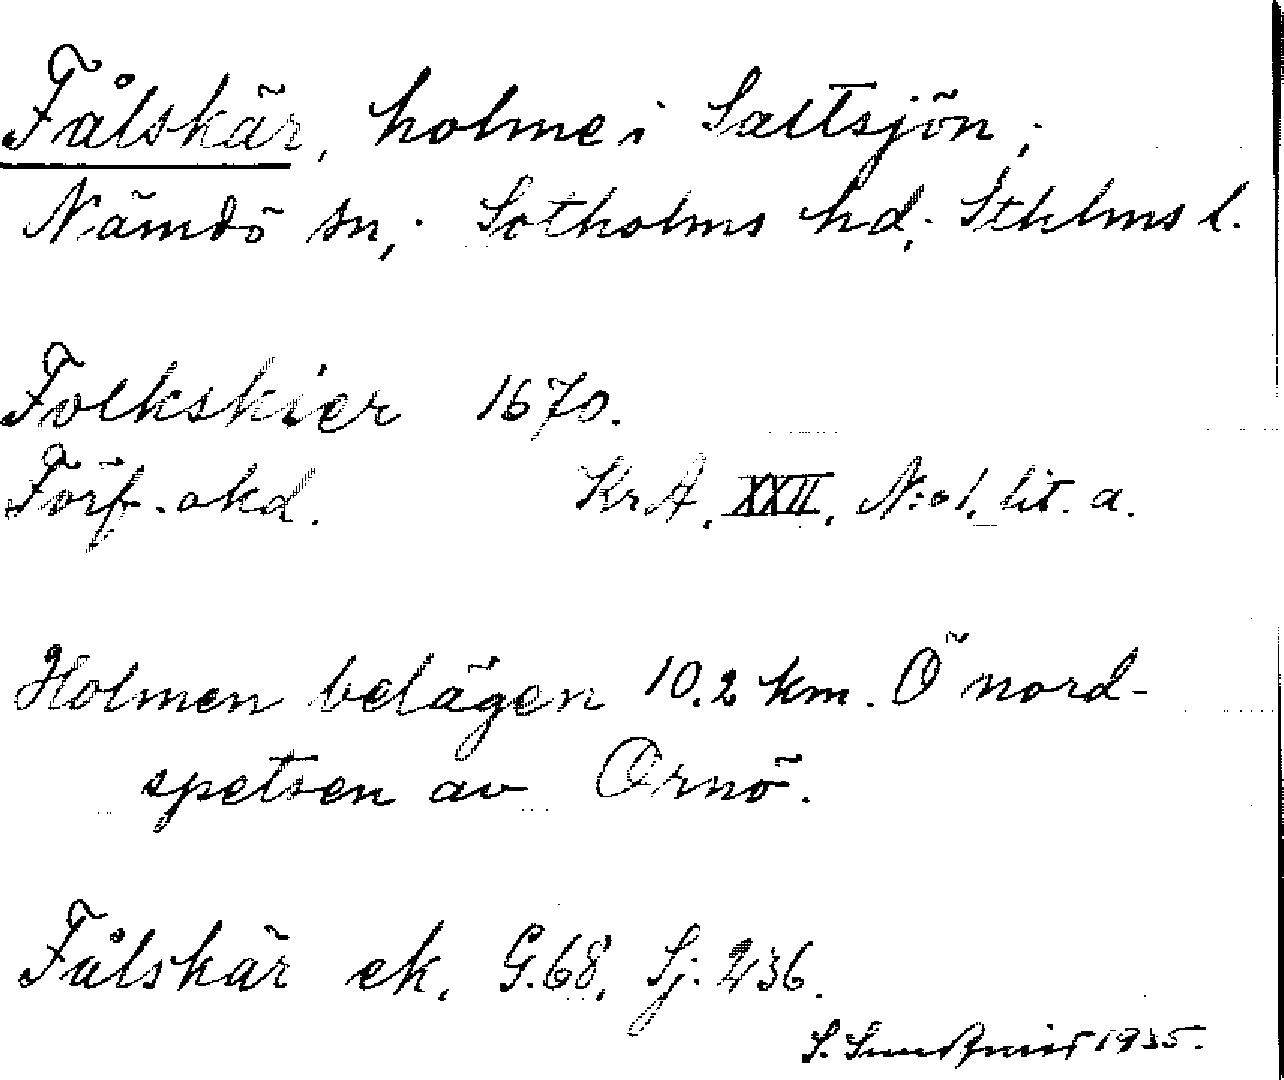 Fålskär, holme i Saltsjön;
Nämdö sn,; Sotholms hd; Sthlms l.
Folkskier 1670.
Förf. okd. KrA, XXII, N:o 1, lit. a.
Holmen belägen 10.2 km. Ö nord-
spetsen av Ornö.
Fålskär ek. G.68, Sj. 236.
S. 1935.